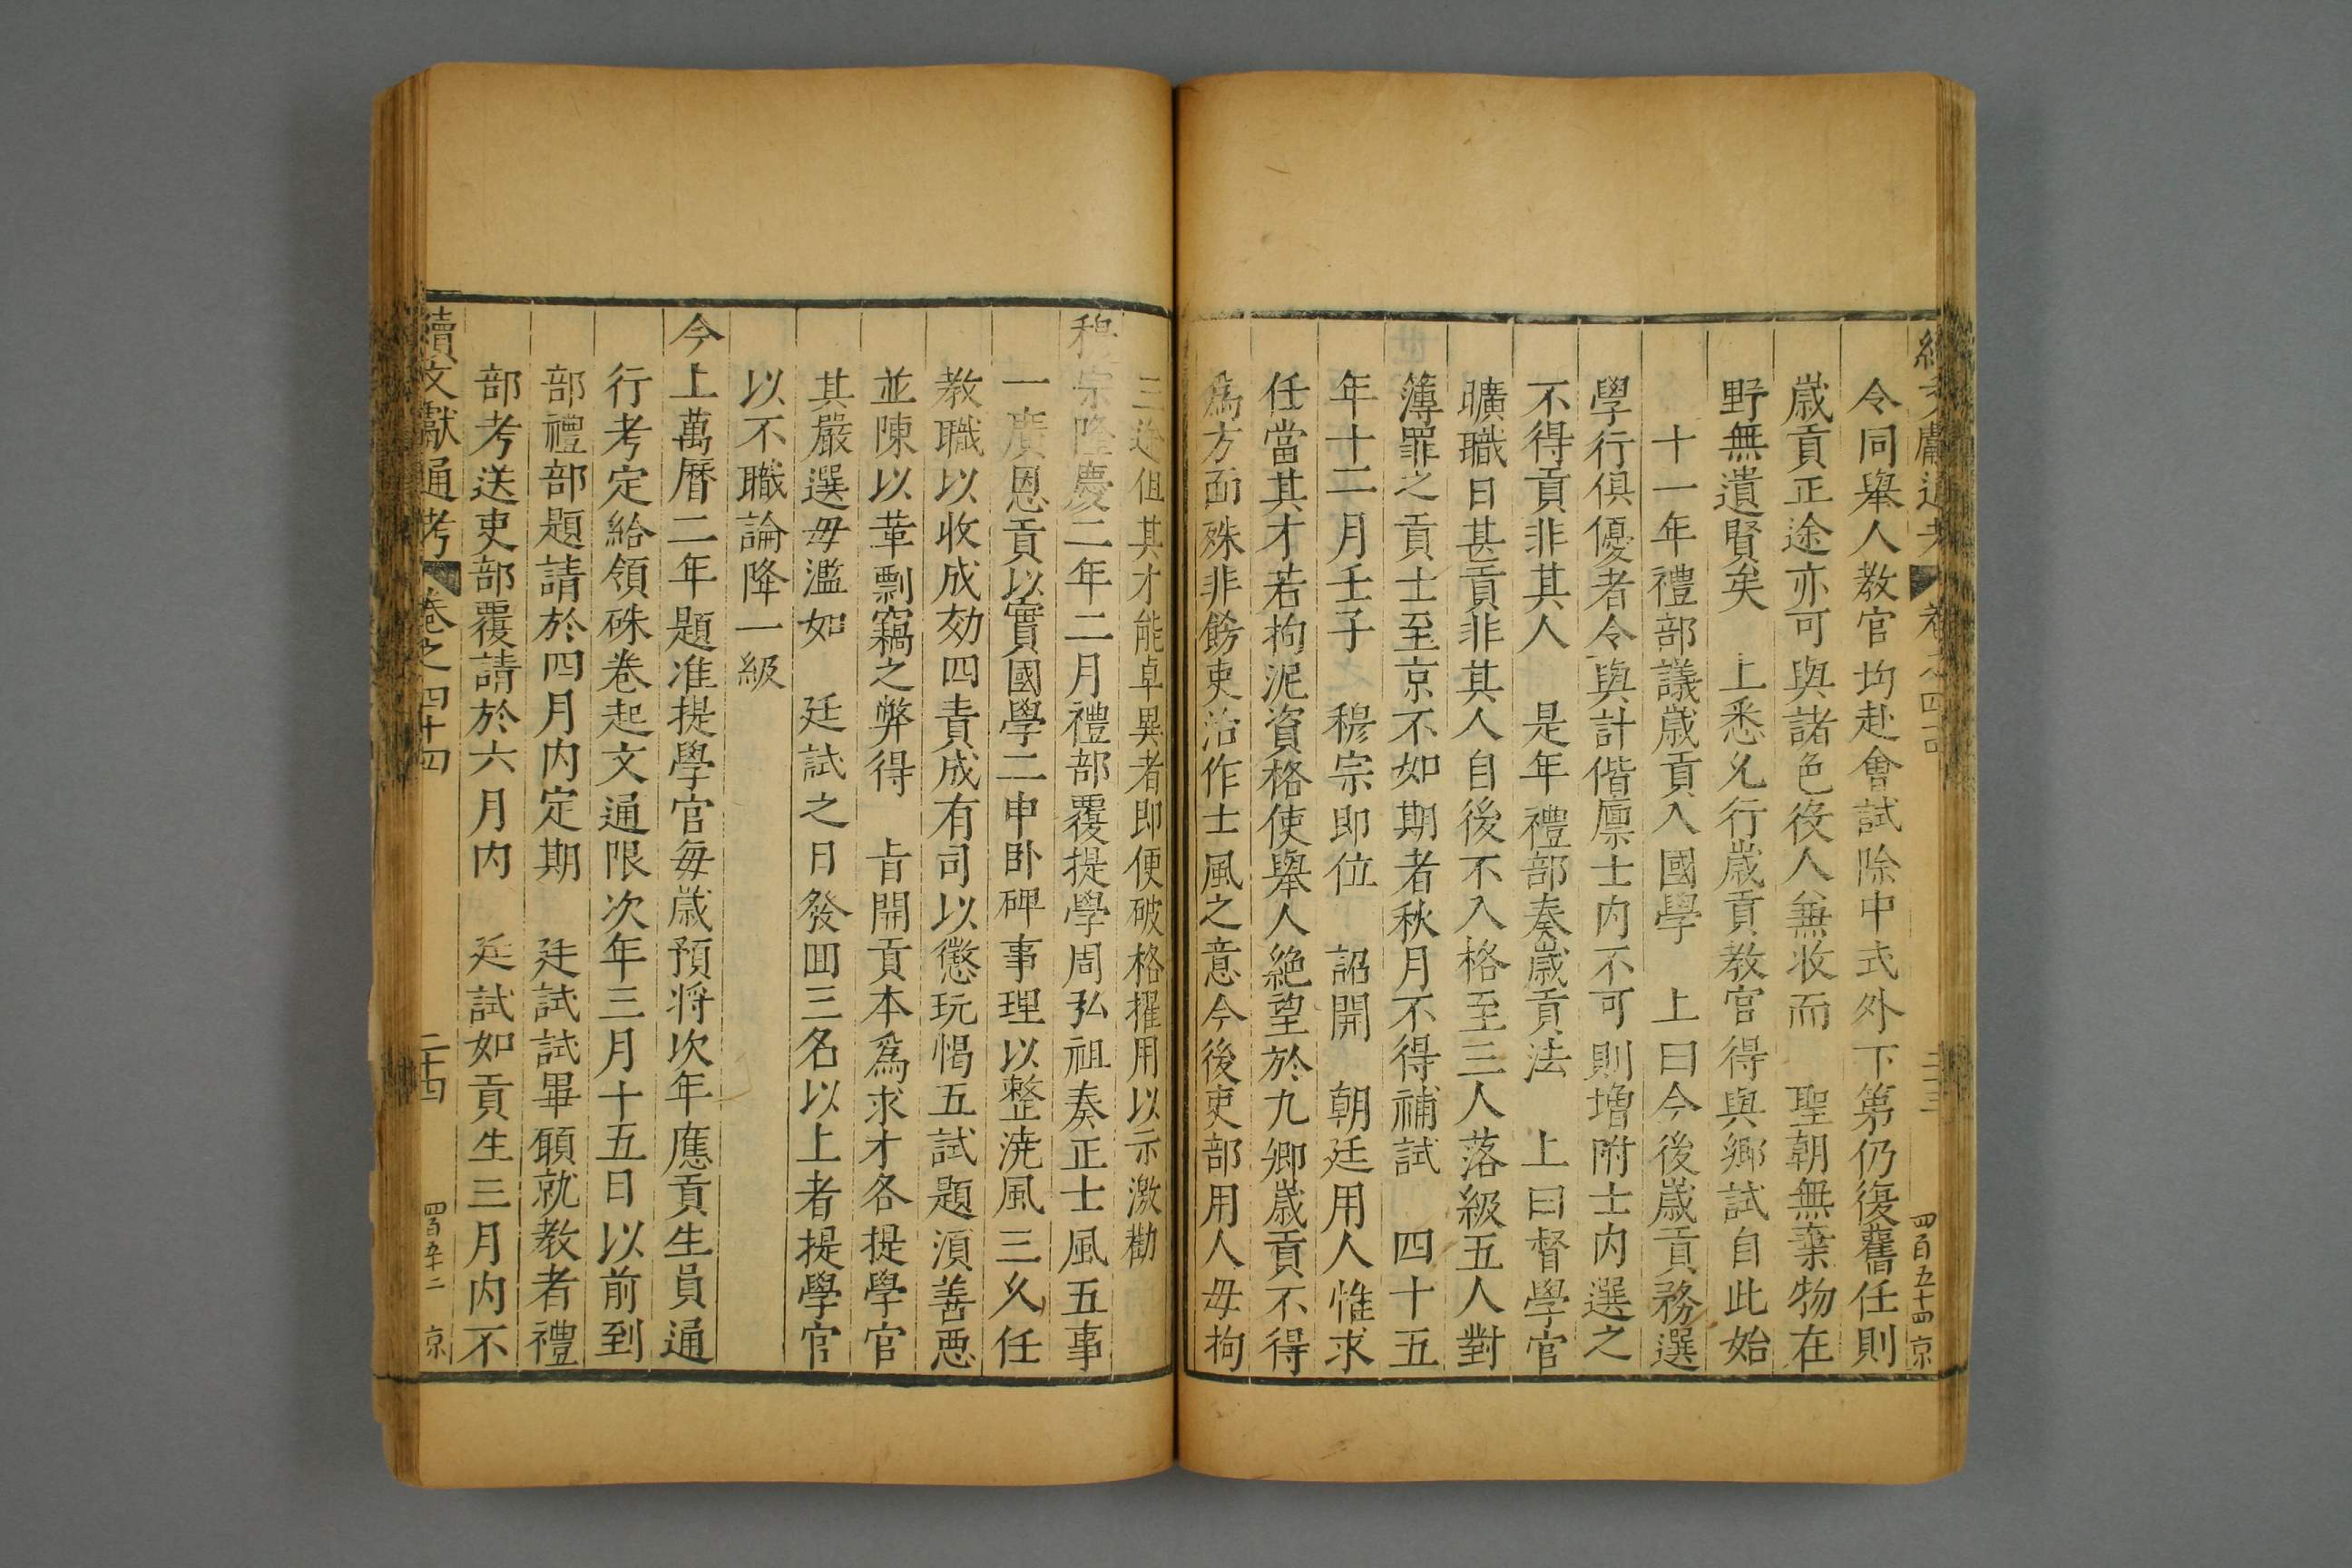 續文獻通考 卷之四十四 二十三 四百五十四 京
令同舉人教官均赴會試除中式外下第仍復舊任則
歲貢正途亦可與諸色役人無收而 聖朝無棄物在
野無遺賢矣 上悉允行歲貢教官得與鄉試自此始
十一年禮部議歲貢入國學 上曰今後歲貢務選
學行俱優者令與計偕廩士内不可則增附士内選之
不得貢非其人 是年禮部奏歲貢法 上曰督學官
曠職日甚貢非其人自後不入格至三人落級五人對
簿罪之貢士至京不如期者秋月不得補試 四十五
年十二月壬子 穆宗即位 詔開 朝廷用人惟求
任當其才若拘泥資格使舉人絶望於九卿歲貢不得
爲方面殊非飭吏治作士風之意今後吏部用人毋拘
三途但其才能卓異者即便破格擢用以示激勸
穆宗隆慶二年二月禮部覆提學周弘祖奏正士風五事
一廣恩貢以實國學二申卧碑事理以整澆風三久任
教職以收成効四責成有司以懲玩愒五試題湏善惡
並陳以革剽竊之弊得 旨開貢本爲求才各提學官
其嚴選毋濫如 廷試之日發回三名以上者提學官
以不職論降一級
今上萬曆二年題准提學官每歲預將次年應貢生員通
行考定給領硃卷起文通限次年三月十五日以前到
部禮部題請於四月内定期 廷試試畢願就教者禮
部考送吏部覆請於六月内 廷試如貢生三月内不
續文獻通考 卷之四十四 二十四 四百五十二 京